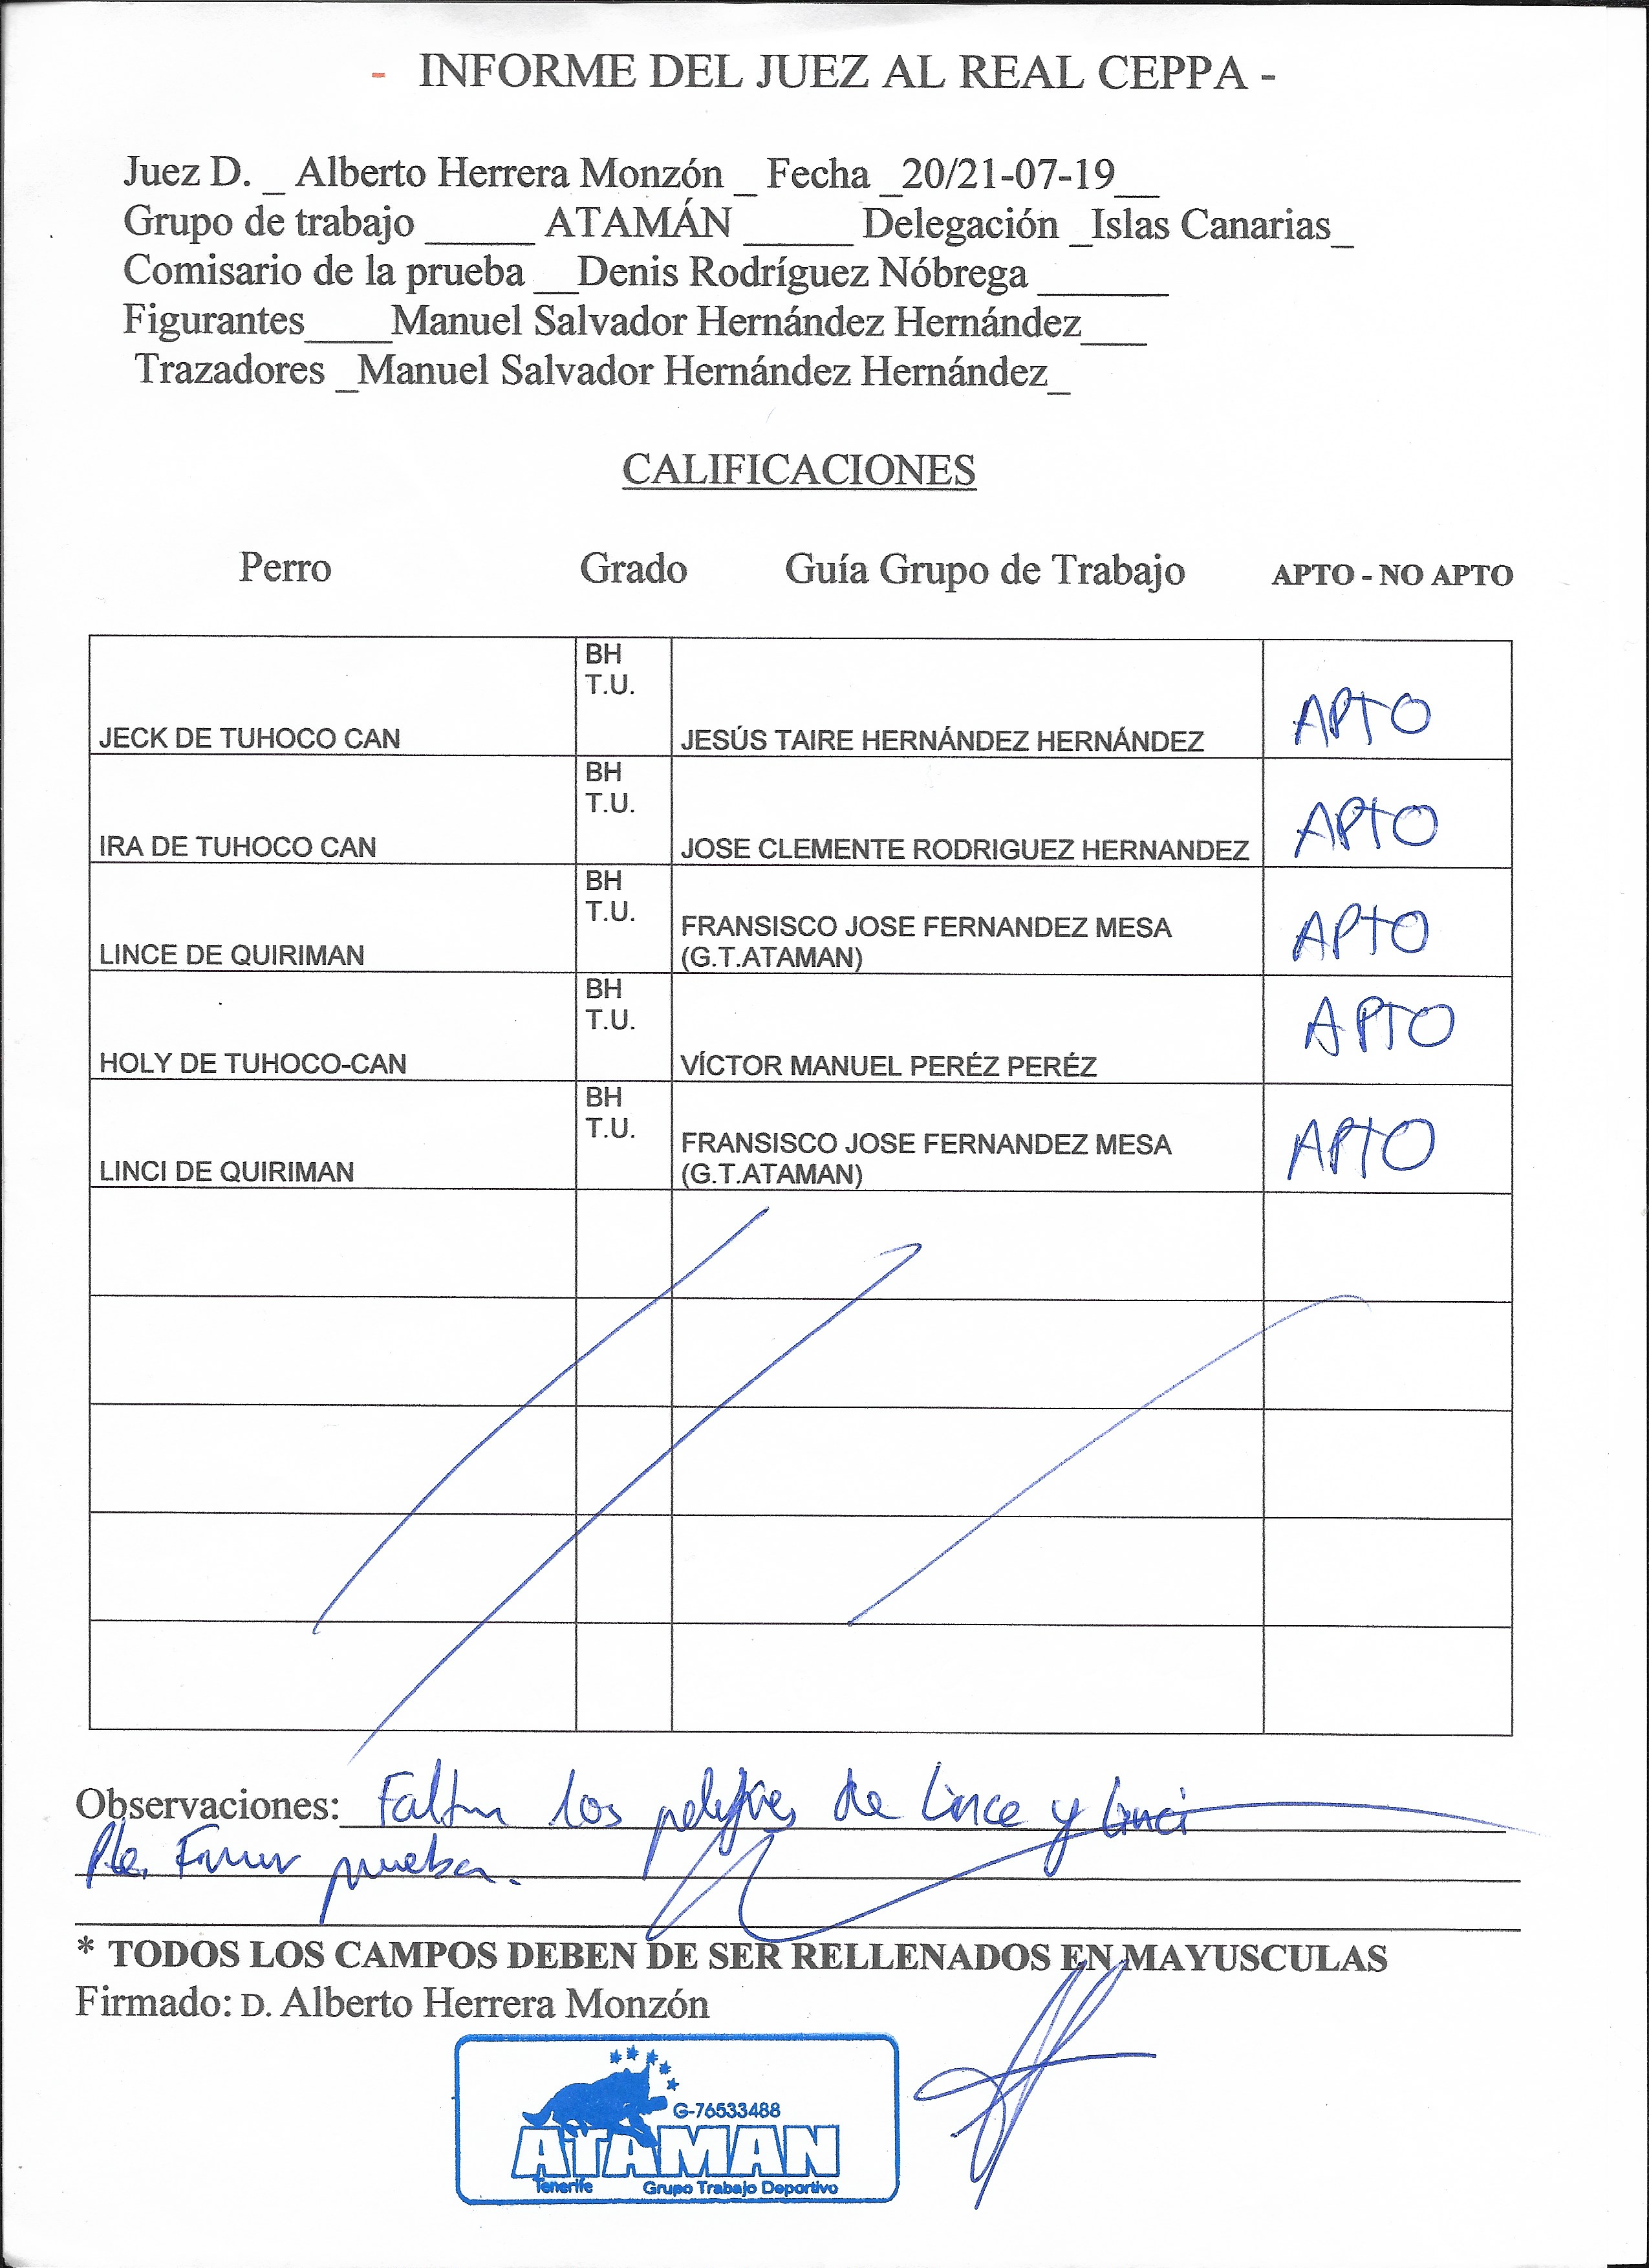 - INFORME DEL JUEZ AL REAL CEPPA -
Juez D. _ Alberto Herrera Monzón _ Fecha _20/21-07-19__
Grupo de trabajo _____ ATAMÁN _____ Delegación _Islas Canarias_
Comisario de la prueba __Denis Rodríguez Nóbrega ______
Figurantes____Manuel Salvador Hernández Hernández___
Trazadores _Manuel Salvador Hernández Hernández_
CALIFICACIONES
Perro Grado Guía Grupo de Trabajo APTO - NO APTO
BH
T.U.
JECK DE TUHOCO CAN JESÚS TAIRE HERNÁNDEZ HERNÁNDEZ APTO
BH
T.U.
IRA DE TUHOCO CAN JOSE CLEMENTE RODRIGUEZ HERNANDEZ APTO
BH
T.U. FRANSISCO JOSE FERNANDEZ MESA APTO
LINCE DE QUIRIMAN (G.T.ATAMAN)
BH
T.U. APTO
HOLY DE TUHOCO-CAN VÍCTOR MANUEL PERÉZ PERÉZ
BH
T.U. FRANSISCO JOSE FERNANDEZ MESA APTO
LINCI DE QUIRIMAN (G.T.ATAMAN)
Observaciones: Faltan los de Lince y Linci
prueba.
* TODOS LOS CAMPOS DEBEN DE SER RELLENADOS EN MAYUSCULAS
Firmado: D. Alberto Herrera Monzón
G-76533488
ATAMAN
Tenerife Grupo Trabajo Deportivo